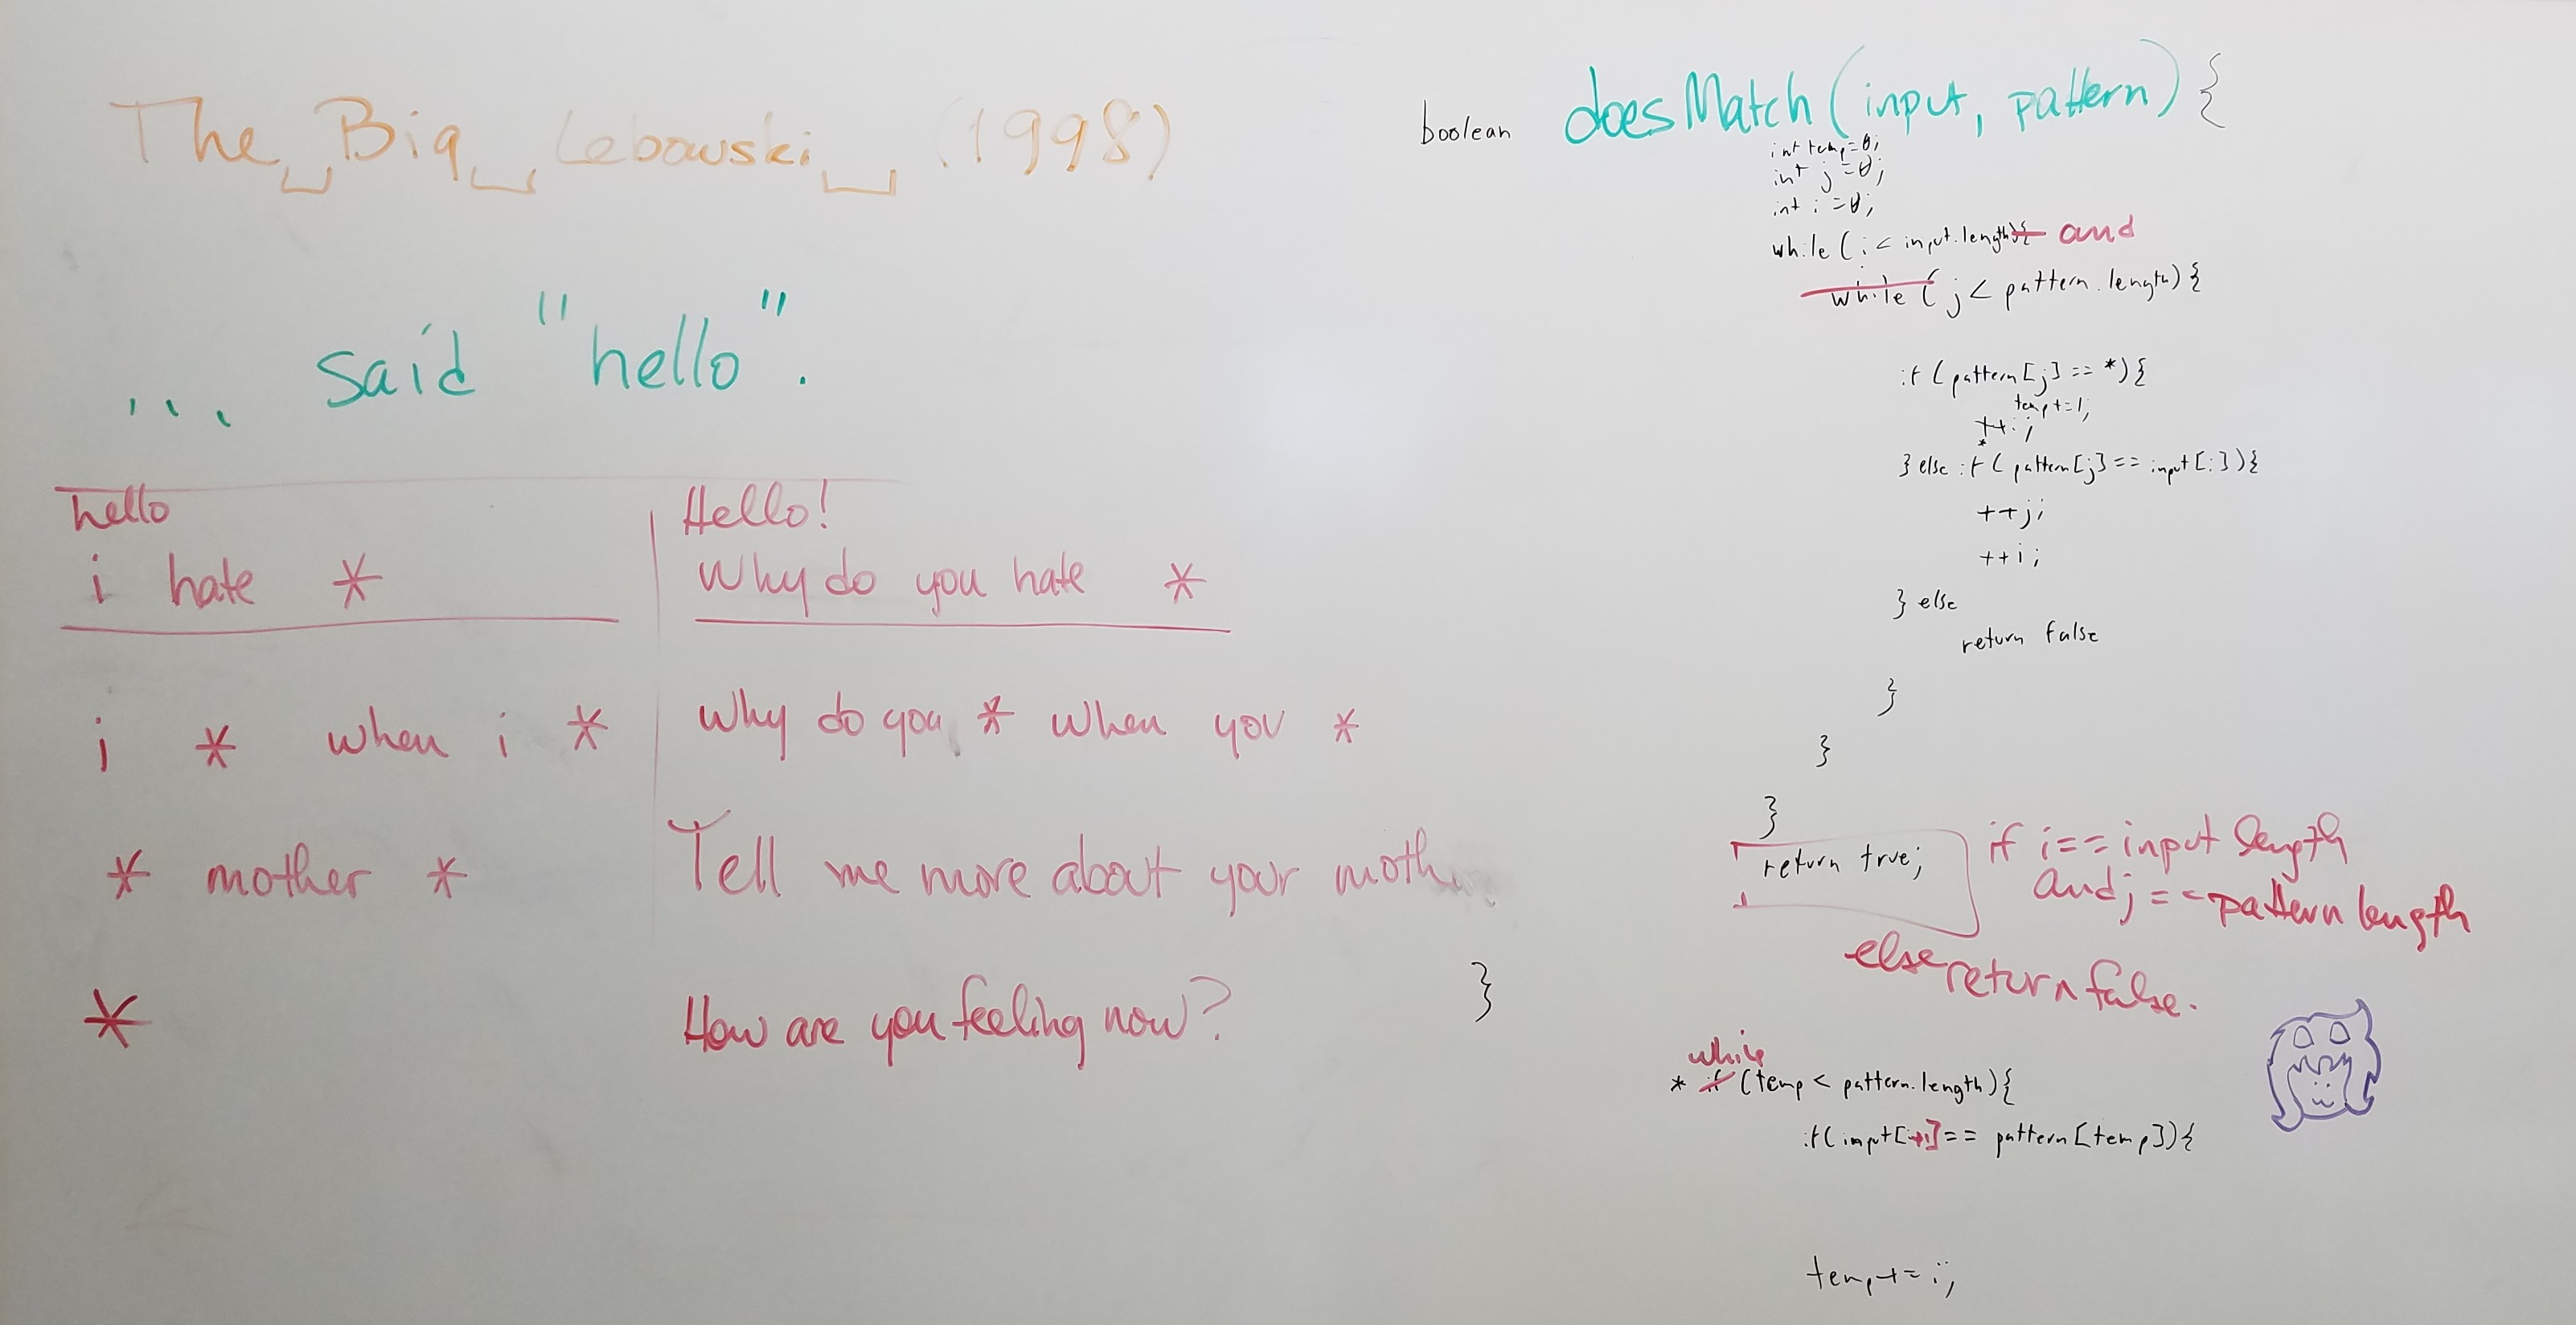 The Big Lebowski (1998)
... said "hello".
hello | Hello!
i hate * | Why do you hate *
i * when i * | Why do you * when you *
* mother * | Tell me more about your moth
* | How are you feeling now?
boolean doesMatch(input, pattern) {
int temp=0;
int j=0;
int i=0;
while (i < input.length){ and
while ( j < pattern.length) {
if (pattern[j] == *) {
temp+=1;
++i;
*
} else if ( pattern[j] == input[i]){
++j;
++i;
} else
return false
}
}
}
return true; if i== input length
and j == pattern length
else return false.
}
while
* if (temp < pattern.length){
if(input[i+1] == pattern[temp]){
temp+= i;